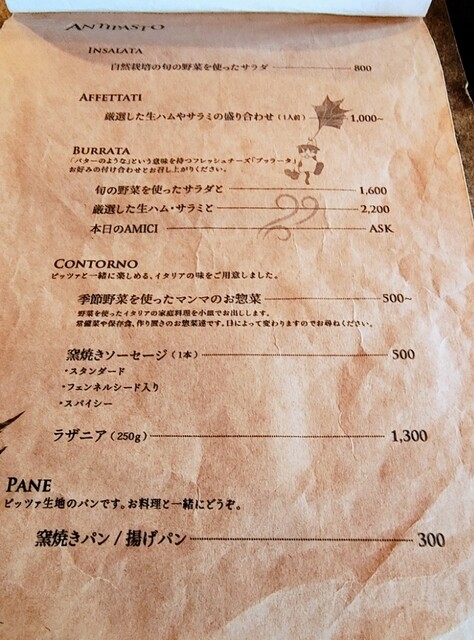 ANTIPASTO
INSALATA
自然栽培の旬の野菜を使ったサラダ 800
AFFETTATI
厳選した生ハムやサラミの盛り合わせ（1人前） 1,000~
BURRATA
「バターのような」という意味を持つフレッシュチーズ「ブッラータ」
お好みの付け合わせとお召し上がりください。
旬の野菜を使ったサラダと 1,600
厳選した生ハム・サラミと 2,200
本日のAMICI ASK
CONTORNO
ピッツァと一緒に楽しめる、イタリアの味をご用意しました。
季節野菜を使ったマンマのお惣菜 500~
野菜を使ったイタリアの家庭料理を小皿でお出しします。
常備菜や保存食、作り置きのお惣菜達です。日によって変わりますのでお尋ねください。
窯焼きソーセージ（1本） 500
・スタンダード
・フェンネルシード入り
・スパイシー
ラザニア（250g） 1,300
PANE
ピッツァ生地のパンです。お料理と一緒にどうぞ。
窯焼きパン / 揚げパン 300